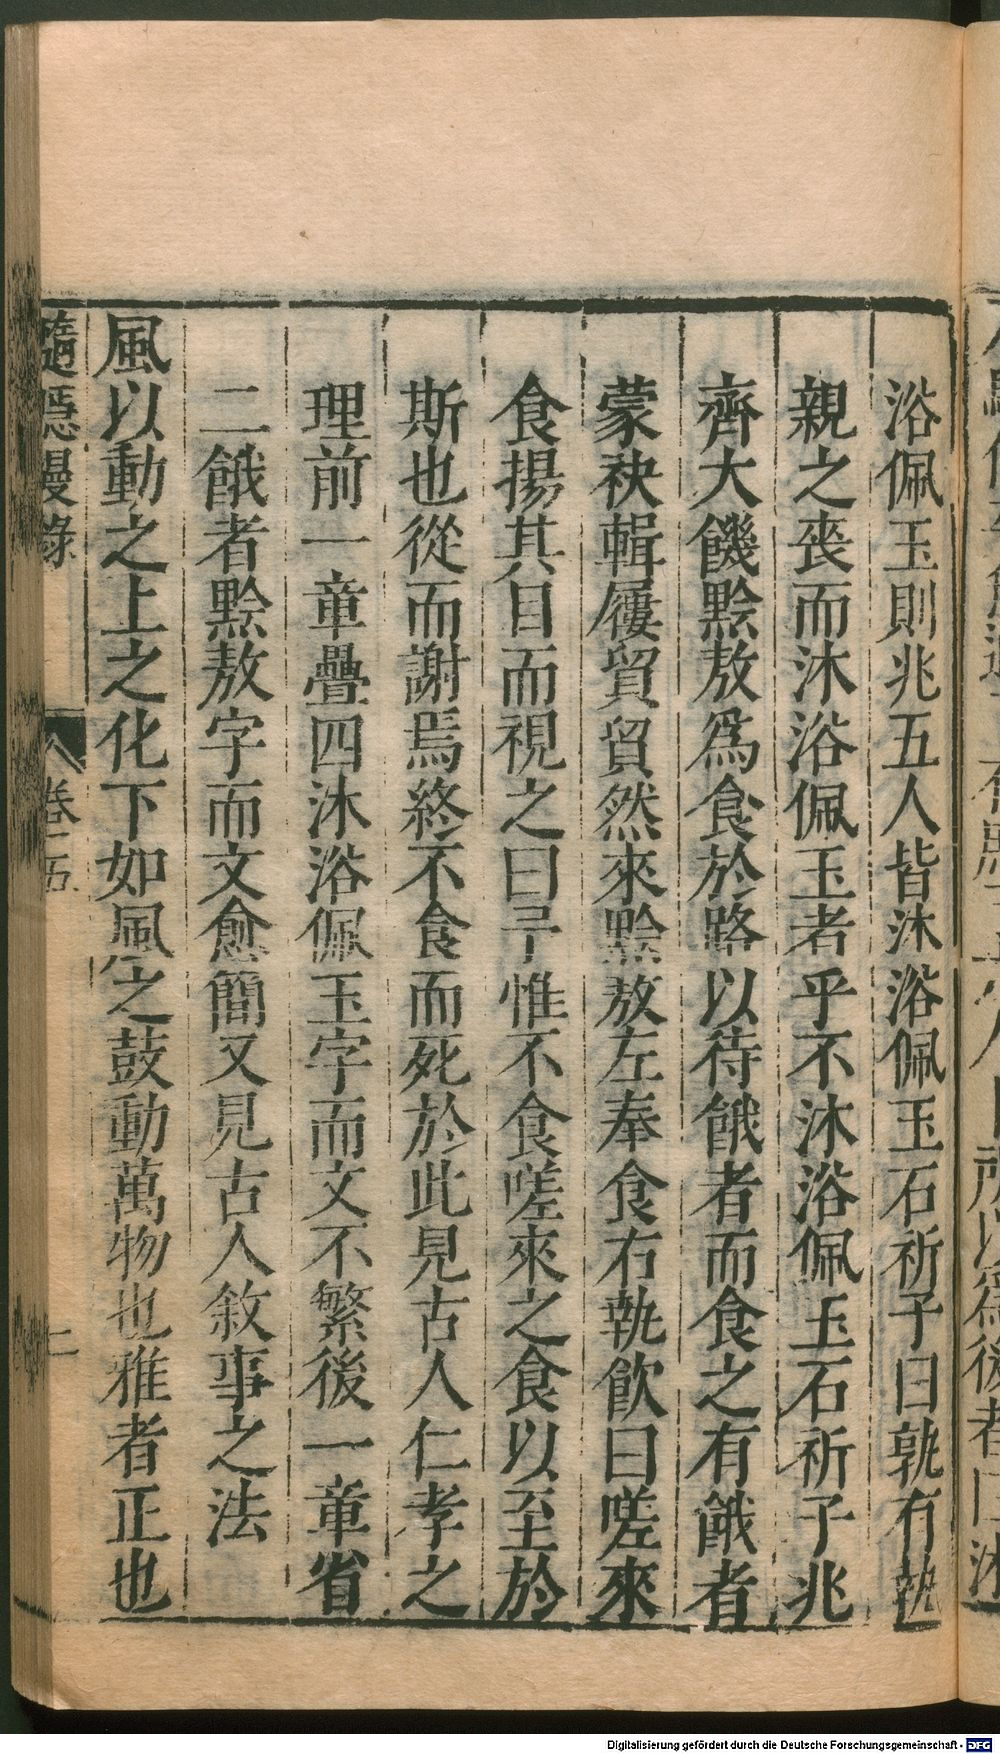 浴佩玉則兆五人皆沐浴佩玉石祈子曰孰有執
親之喪而沐浴佩玉者乎不沐浴佩玉石祈子兆
齊大饑黔敖為食於路以待餓者而食之有餓者
蒙袂輯屨貿貿然來黔敖左奉食右執飲曰嗟來
食揚其目而視之曰予惟不食嗟來之食以至於
斯也從而謝焉終不食而死於此見古人仁孝之
理前一章疊四沐浴佩玉字而文不繁後一章省
二餓者黔敖字而文愈簡又見古人敘事之法
風以動之上之化下如風之鼓動萬物也雅者正也
隨隱漫錄
卷五
二
Digitalisierung gefördert durch die Deutsche Forschungsgemeinschaft - DFG